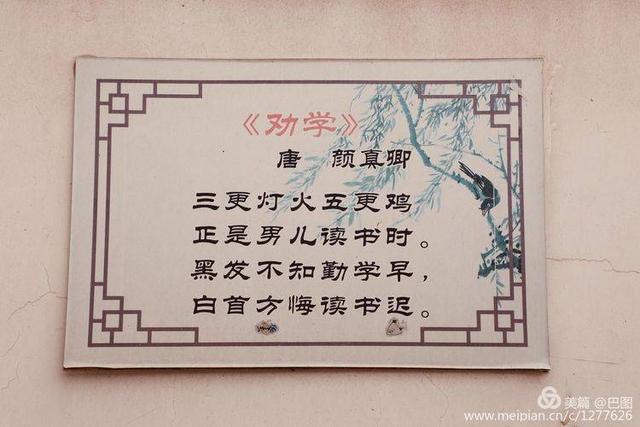 《劝学》
唐 颜真卿
三更灯火五更鸡
正是男儿读书时。
黑发不知勤学早，
白首方悔读书迟。
美篇 @巴图
www.meipian.cn/c/1277626